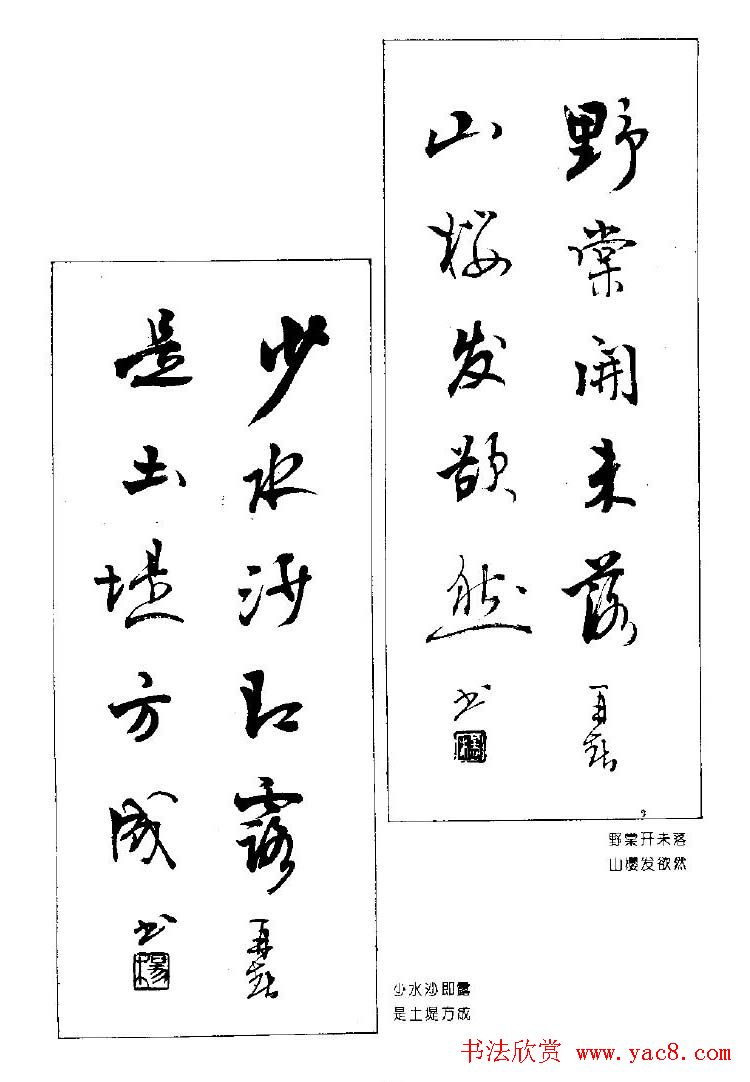 野棠開未落 再春
山樱发欲然 书
野棠开未落
山樱发欲然
少水沙即露 再春
是土堤方成 书
楊
少水沙即露
是土堤方成
书法欣赏 www.yac8.com